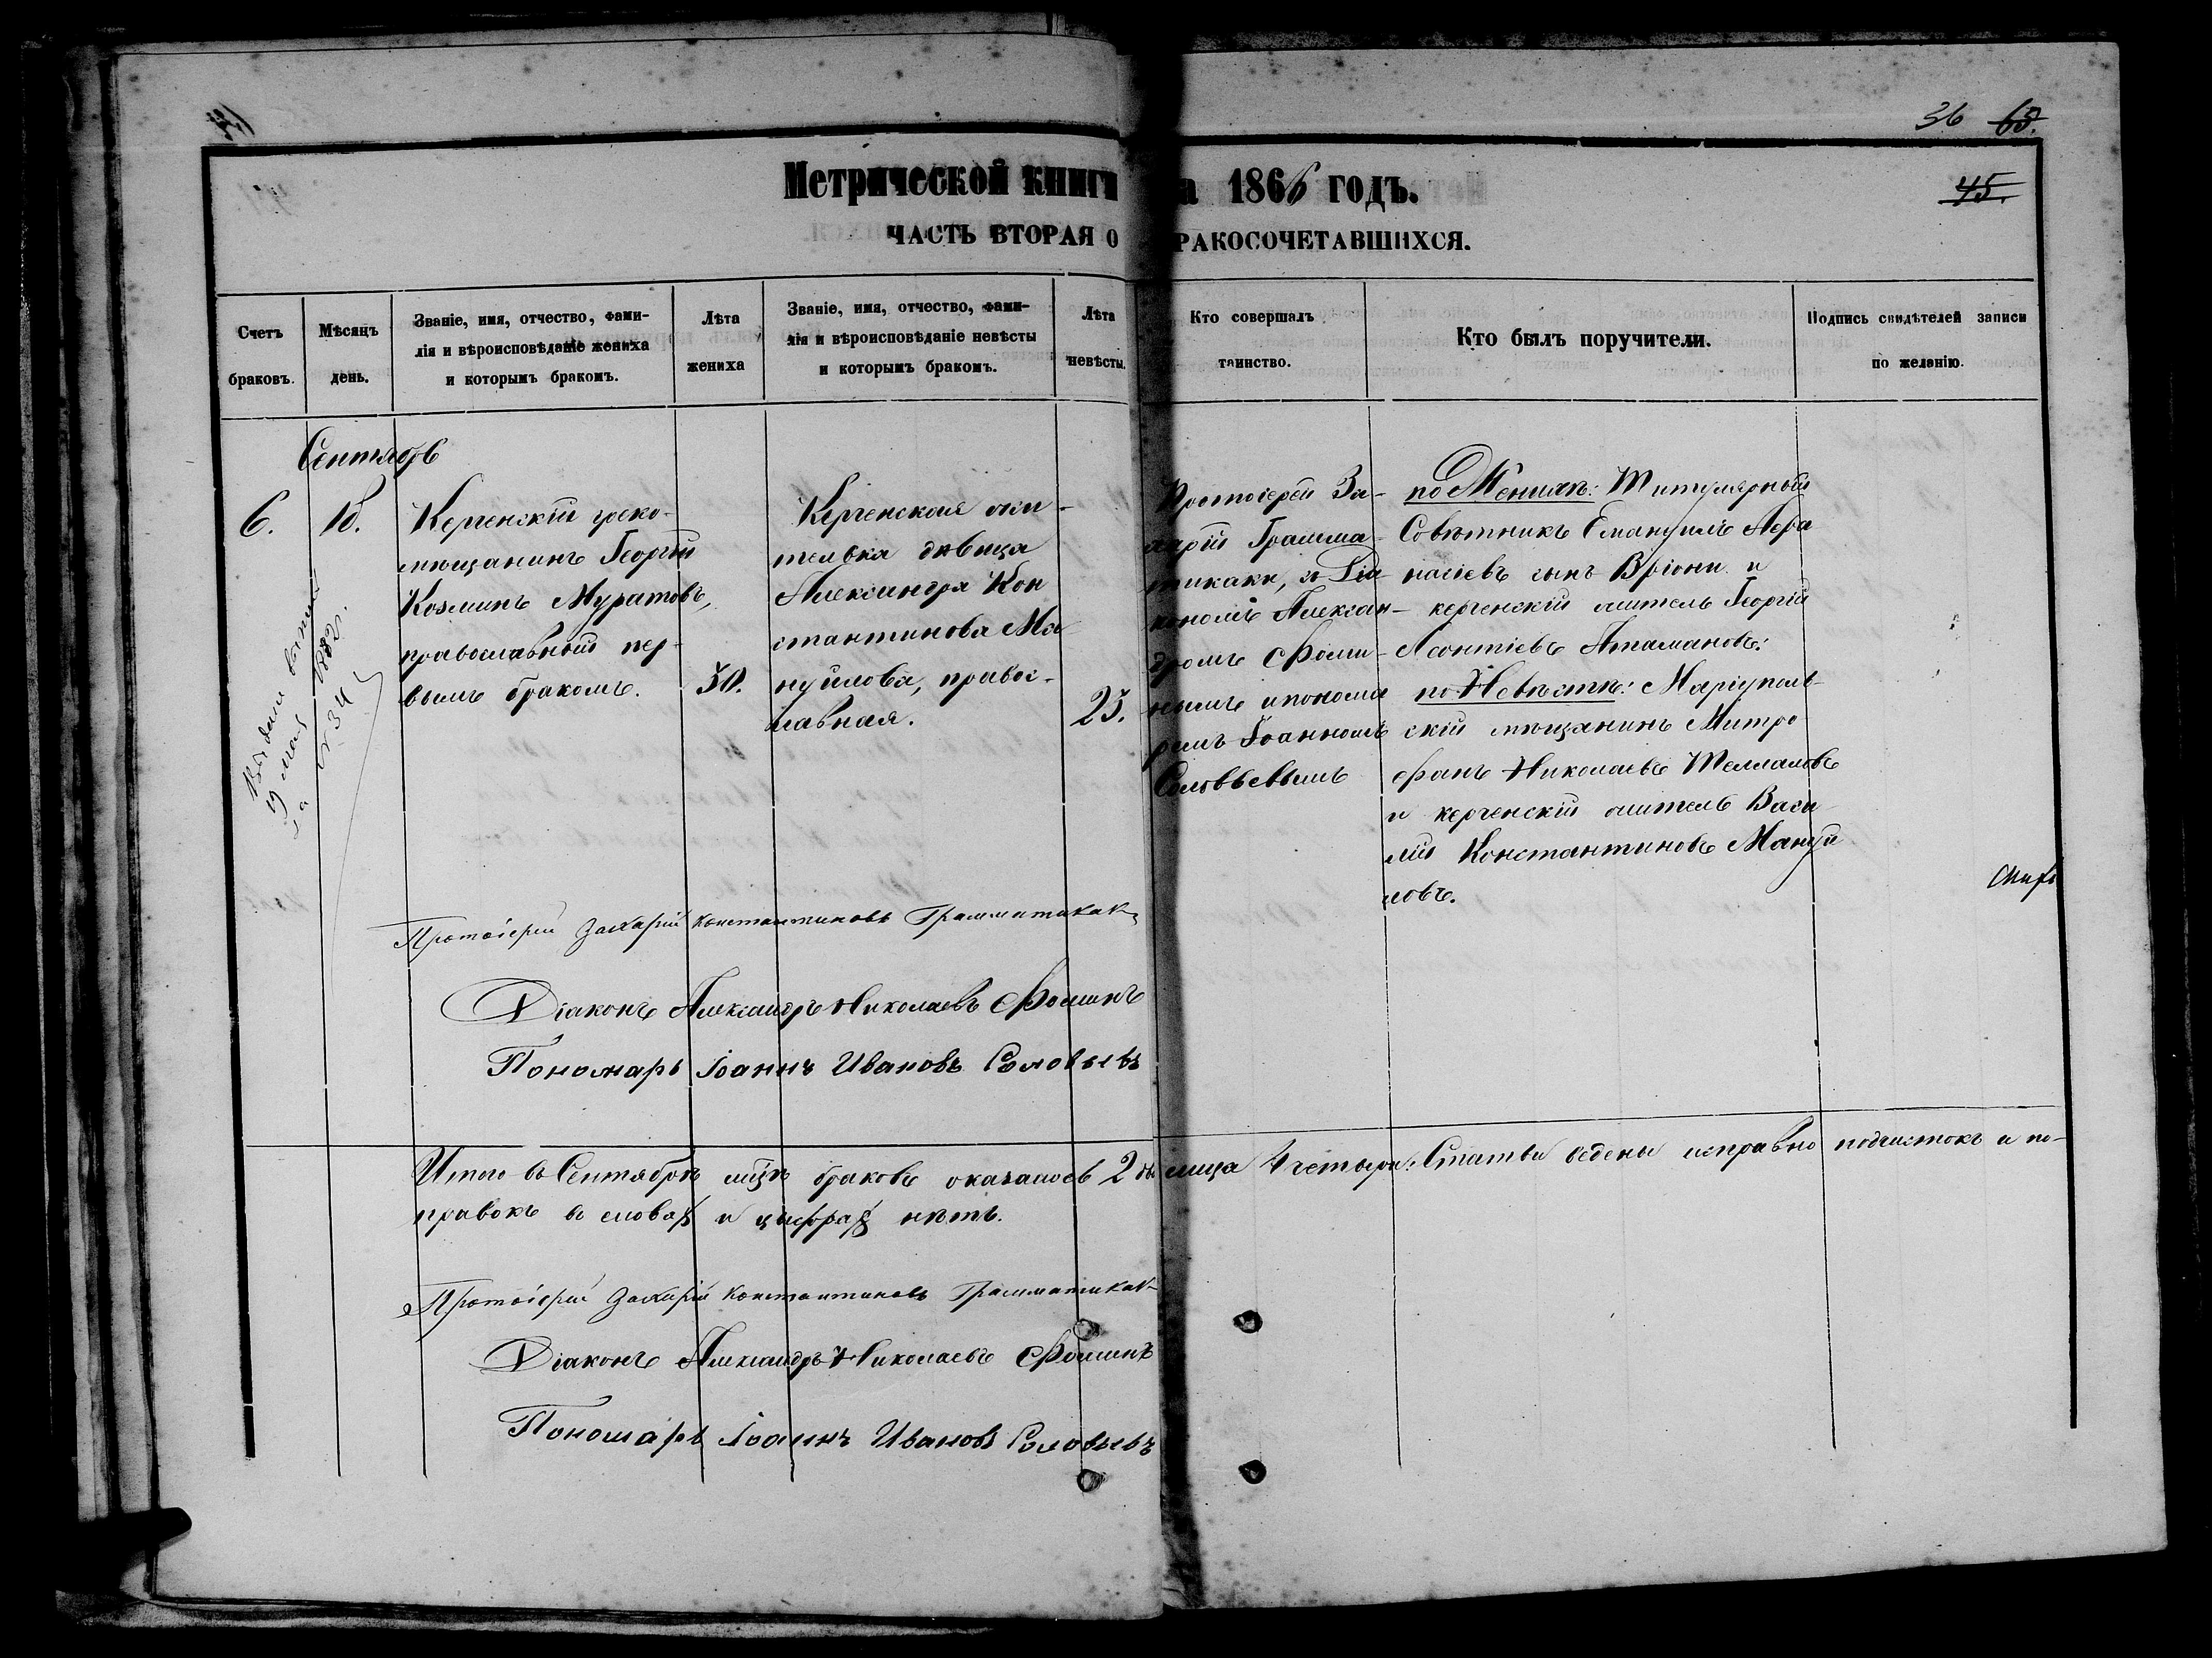 36 65.
Метрической книги а 1866 годъ.
45.
ЧАСТЬ ВТОРАЯ О РАКОСОЧЕТАВШИХСЯ.
Счетъ браковъ.
Мѣсяцъ день.
Званіе, имя, отчество, фами-
лія и вѣроисповѣданіе жениха
и которымъ бракомъ.
Лѣта
жениха
Званіе, имя, отчество, фами-
лія и вѣроисповѣданіе невѣсты
и которымъ бракомъ.
Лѣта
невѣсты.
Кто совершалъ
таинство.
Кто былъ поручители.
Подпись свидѣтелей записи
по желанію.
Сентябрь
6.
18.
Керченскій греко-
мѣщанинъ Георгій
Козминъ Муратовъ,
православный пер-
вымъ бракомъ.
30.
Керченская жи-
тельва дѣвица
Александра Кон
стантинова Ма
нуйлова, правос-
лавная.
25.
Протоіерей За-
харій Грамма-
тикаки, съ Діа-
кономъ Алексан-
дромъ Фоми-
нымъ и понома
ремъ Іоанномъ
Соловьевымъ
по Женихѣ: Титулярный
Совѣтникъ Емануилъ Афа
насіевъ сынъ Вріони и
керченскій житель Георгій
Леонтіевъ Атамановъ:
по Невѣстѣ: Маріуполь-
скій мѣщанинъ Митро
фанъ Николаевъ Телламовъ
и керченскій житель Васи
лій Константиновъ Мануй
ловъ.
Выдали
19 мая 1882 г.
за № 34
Протоіерей Захарій Константиновъ Грамматикак
Діаконъ Александръ Николаевъ Фоминъ
Пономарь Іоаннъ Ивановъ Соловьевъ
Итого въ Сентябрѣ мцѣ браковъ оказалось 2 лица 4 четыри. Статьи ведены исправно подчистокъ и по-
правокъ в словах и цыфрах нѣтъ.
Протоіерей Захарій Константиновъ Грамматикак
Діаконъ Александръ Николаевъ Фоминъ
Пономарь Іоаннъ Ивановъ Соловьевъ